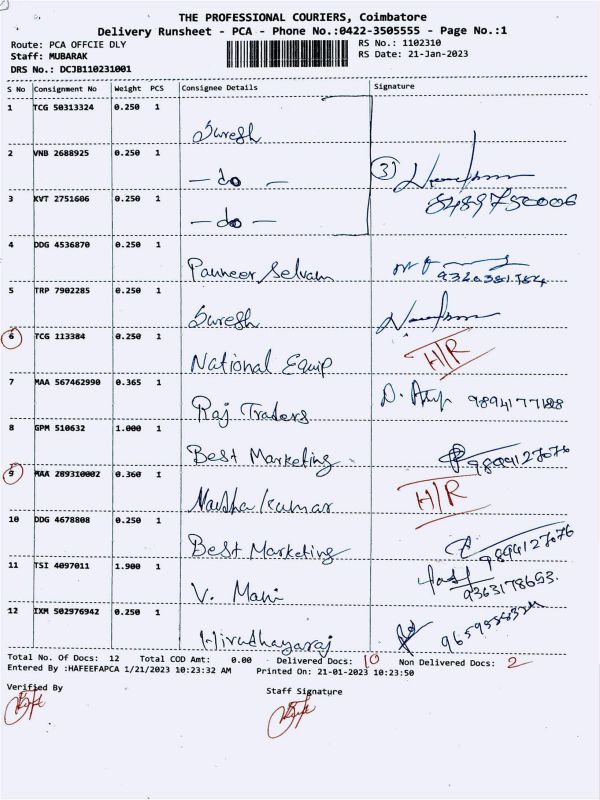 THE PROFESSIONAL COURIERS, Coimbatore
Delivery Runsheet - PCA - Phone No.:0422-3505555 - Page No.:1
Route: PCA OFFCIE DLY RS No.: 1102310
Staff: MUBARAK RS Date: 21-Jan-2023
DRS No.: DCJB110231001
S No Consignment No Weight PCS Consignee Details Signature
1 TCG 50313324 0.250 1
Suresh
2 VNB 2688925 0.250 1
— do — 3)
3 KVT 2751606 0.250 1 8489750006
— do —
4 DDG 4536870 0.250 1
Panneer Selvam
5 TRP 7902285 0.250 1
Suresh
6 TCG 113384 0.250 1 H/R
National Equip
7 MAA 567462990 0.365 1
Raj Traders 9894177188
8 GPM 510632 1.000 1
Best Marketing 9894127676
9 MAA 289310002 0.360 1 H/R
Kumar
10 DDG 4678808 0.250 1
Best Marketing 9894127676
11 TSI 4097011 1.900 1
V. Mani 9363178653.
12 IXM 502976942 0.250 1
Hirudhayaraj
Total No. Of Docs: 12 Total COD Amt: 0.00 Delivered Docs: 10 Non Delivered Docs: 2
Entered By :HAFEEFAPCA 1/21/2023 10:23:32 AM Printed On: 21-01-2023 10:23:50
Verified By Staff Signature